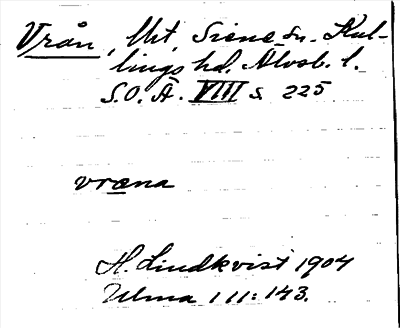 Vrån, Utt, Siene sn. Kul-
lings hd. Älvsb. l.
S.O.Ä. VIII s. 225
vræna
H. Lindkvist 1904
Ulma 111:143.